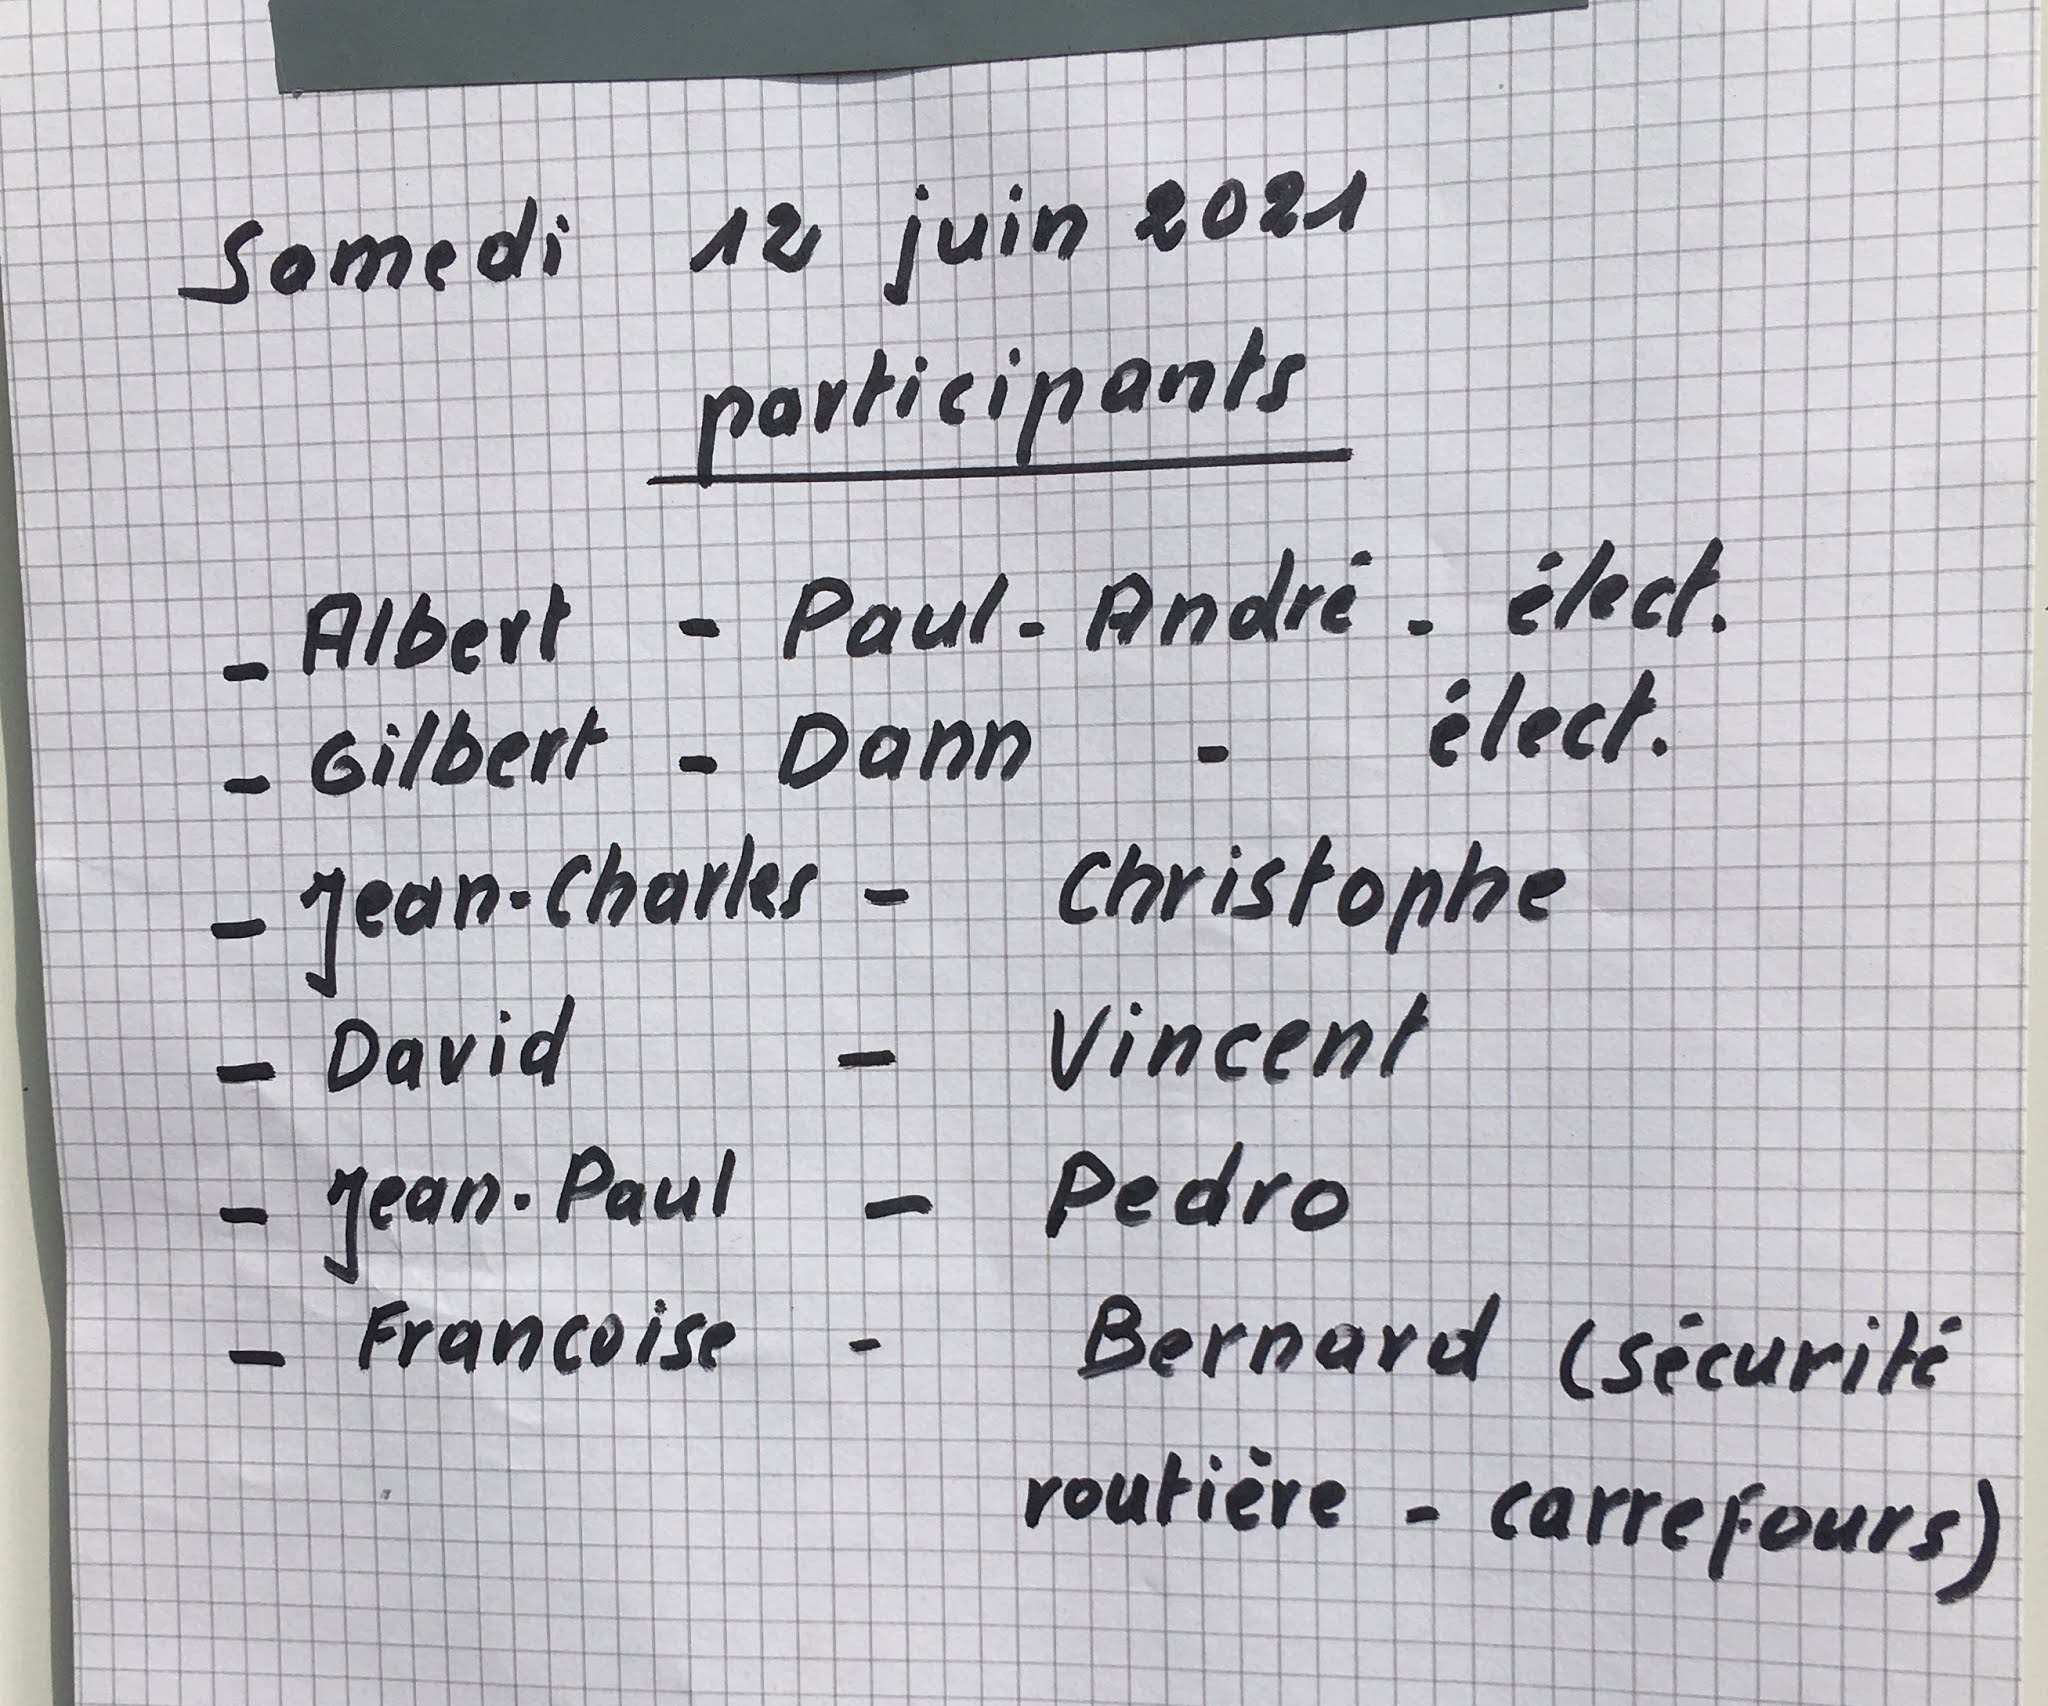 Samedi 12 juin 2021
participants
- Albert - Paul-André - élect.
- Gilbert - Dann - élect.
- Jean-Charles - Christophe
- David - Vincent
- Jean-Paul - Pedro
- Francoise - Bernard (sécurité
routière - carrefours)